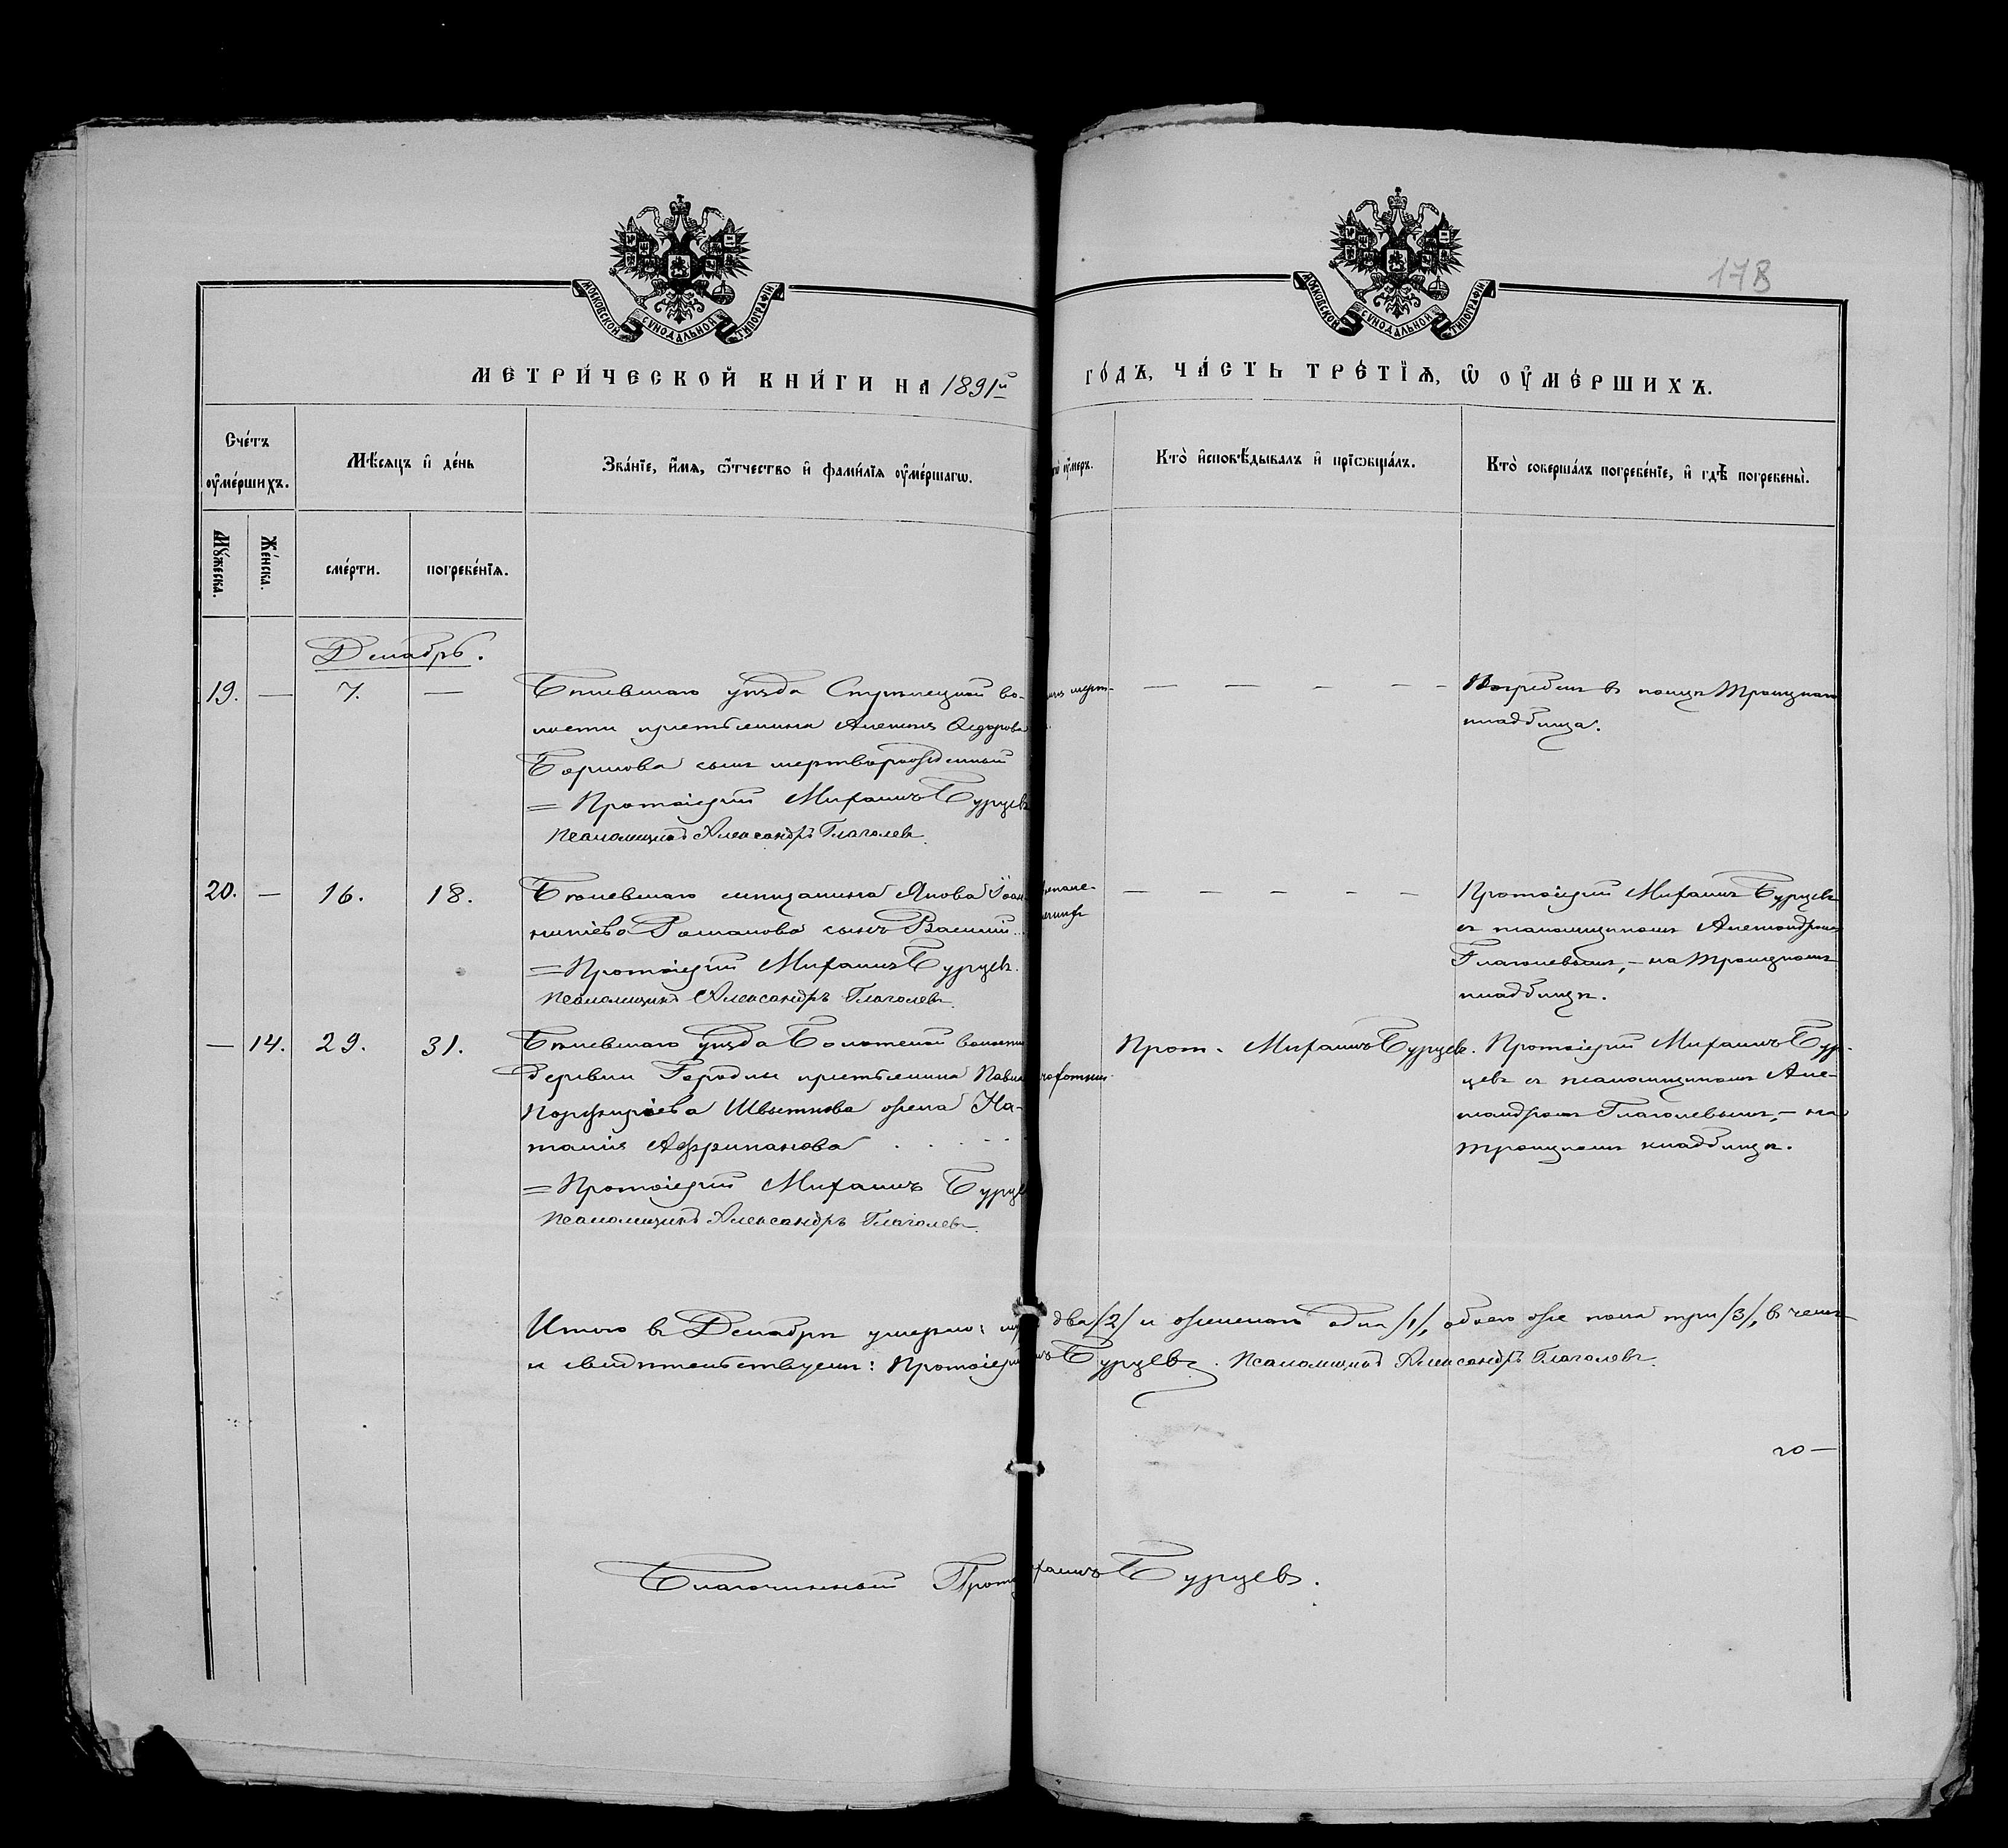 МОСКОВСКОЙ СѴНОДАЛЬНОЙ ТИПОГРАФІИ
МОСКОВСКОЙ СѴНОДАЛЬНОЙ ТИПОГРАФІИ
178
МЕТРИ́ЧЕСКОЙ КНИ́ГИ НА 1891й
ГО́ДЪ, ЧА́СТЬ ТРЕ́ТІѦ, Ѿ ОУ҆МЕ́РШИХЪ.
Сче́тъ оу҆ме́ршихъ.
Мѣ́сяцъ и҆ де́нь
Зва́нїе, и҆́мѧ, ѻ҆́тчество и҆ фами́лїѧ оу҆ме́ршагѡ.
оу҆́меръ.
Кто̀ и҆сповѣ́дывалъ и҆ прїѡбща́лъ.
Кто̀ соверша́лъ погребе́нїе, и҆ гдѣ̀ погребены̀.
Мꙋ́жеска.
Же́нска.
сме́рти.
погребе́нїѧ.
Декабрь.
19. — 7. — Бѣлевскаго уѣзда Стрѣлецкой во-
лости крестьянина Алексѣя Ѳедорова
Борисова сынъ мертворожденный
= Протоіерей Михаилъ Бурцевъ
Псаломщикъ Александръ Глаголевъ.
— — — — —
Погребенъ в концѣ Троицкаго
кладбища.
20. — 16. 18. Бѣлевскаго мѣщанина Якова Іоан-
никіева Романова сынъ Василій...
= Протоіерей Михаилъ Бурцевъ.
Псаломщикъ Александръ Глаголевъ.
— — — — —
Протоіерей Михаилъ Бурцевъ
съ псаломщикомъ Александромъ
Глаголевымъ, — на Троицкомъ
кладбищѣ.
— 14. 29. 31. Бѣлевскаго уѣзда Болотской волости
деревни Городни крестьянина Павла
Порфиріева жена На-
талія Африканова . . . . .
= Протоіерей Михаилъ Бурцевъ
Псаломщикъ Александръ Глаголевъ.
чахотки
Прот. Михаилъ Бурцевъ.
Протоіерей Михаилъ Бур-
цевъ съ псаломщикомъ Але-
ксандромъ Глаголевымъ, — на
Троицкомъ кладбищѣ.
Итого в Декабрѣ умерло: два /2/ и женскаго одна /1/, обоего же пола три /3/, в чемъ
и свидѣтельствуемъ: Протоіерей Бурцевъ. Псаломщикъ Александръ Глаголевъ.
го —
Благочинный Прот Михаилъ Бурцевъ.